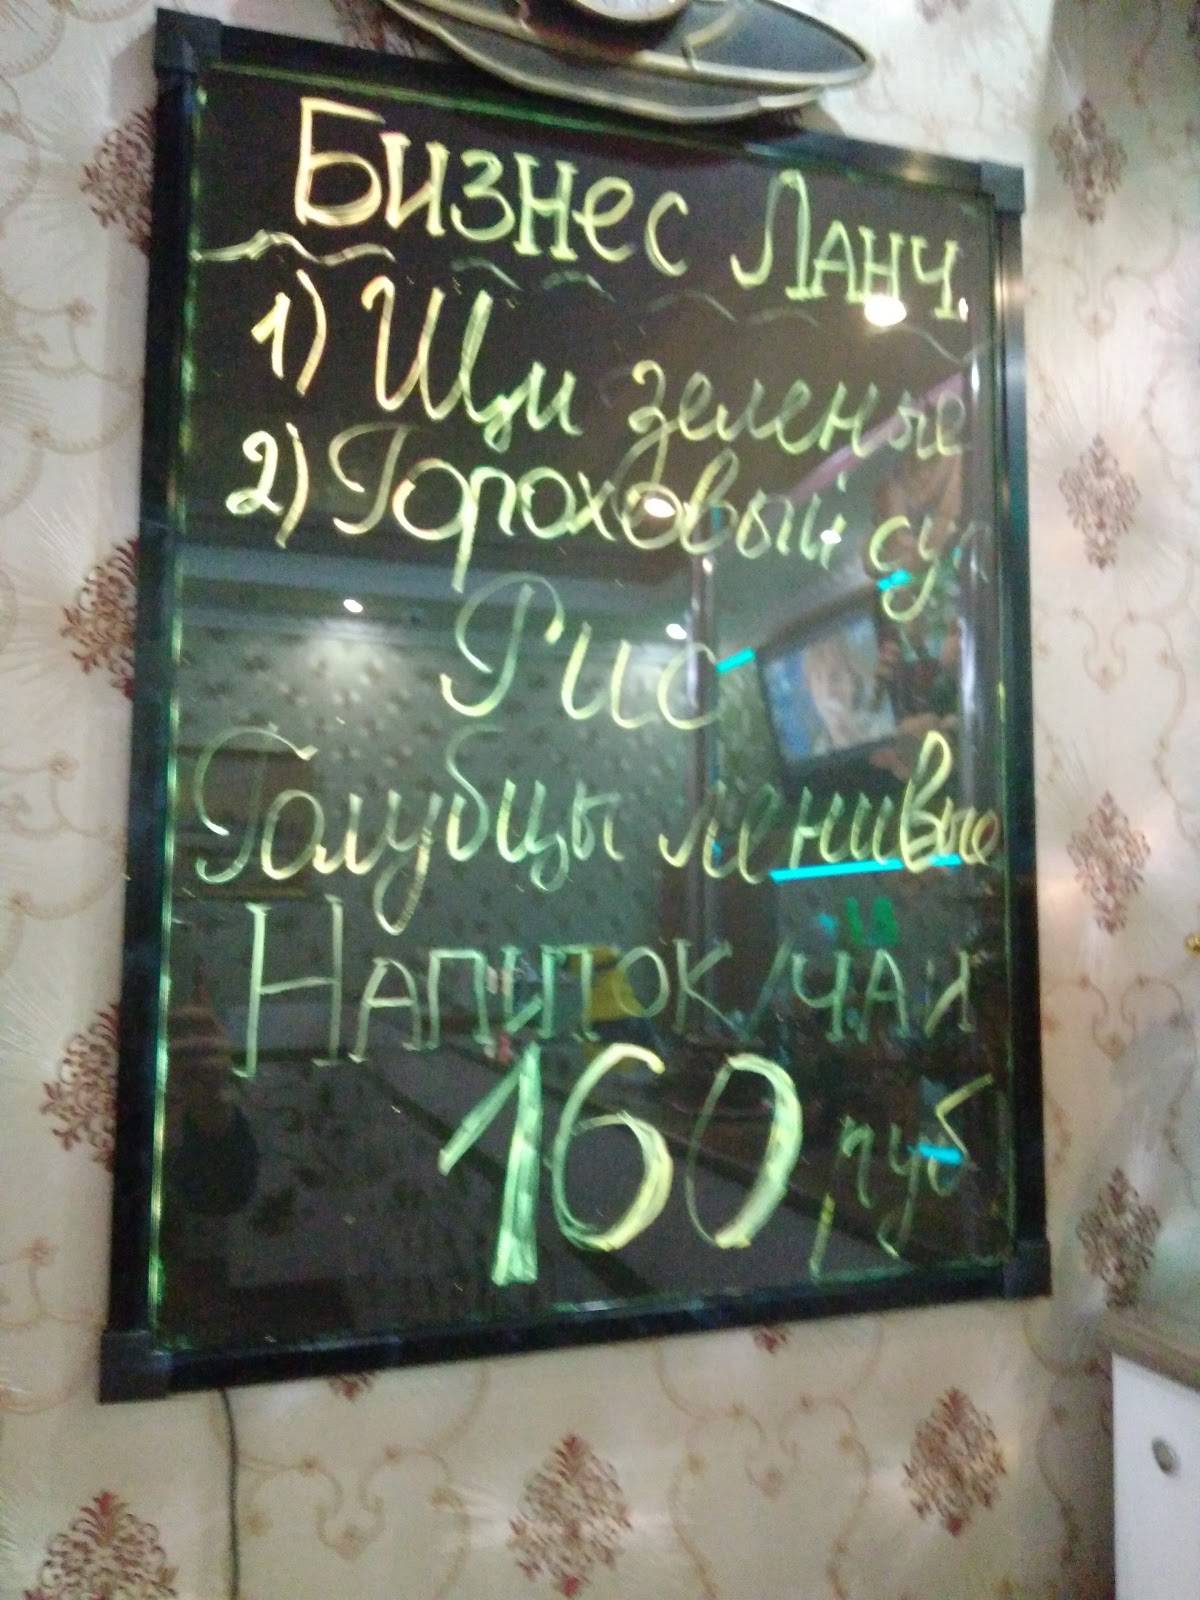 Бизнес Ланч.
1) Щи зеленые
2) Гороховый суп
Рис
Голубцы ленивые
Напиток/чай
160 руб